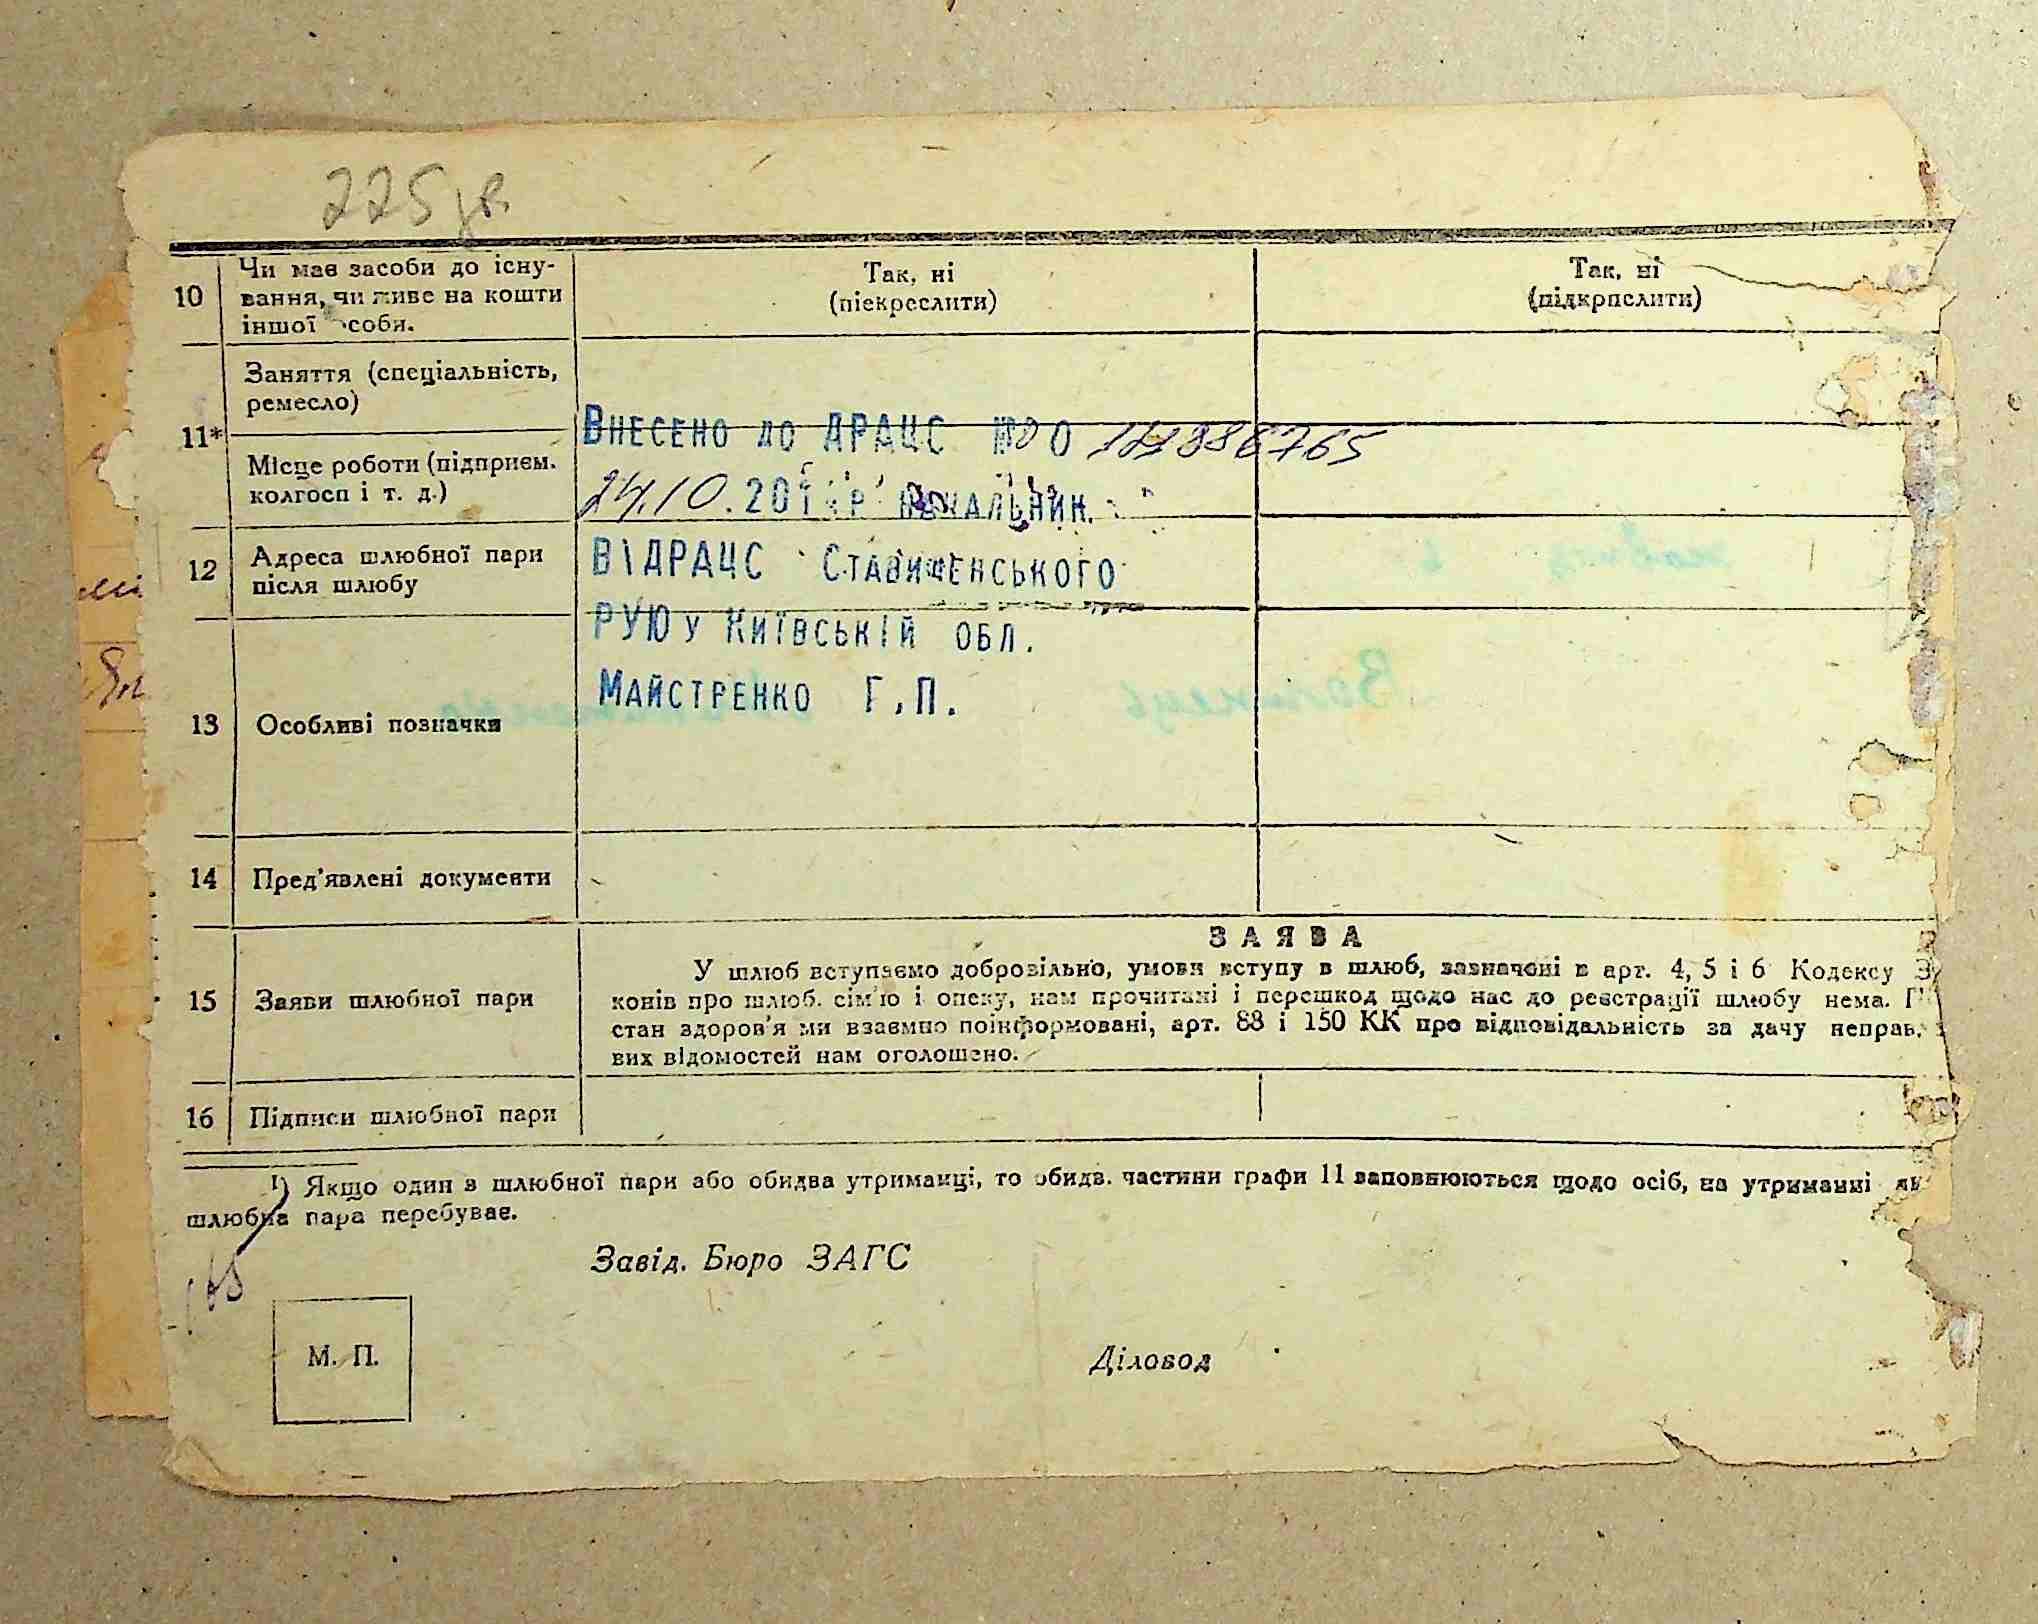 225 зв.
10 Чи має засоби до існу- Так, ні Так, ні
вання, чи живе на кошти (піекреслити) (підкрпслити)
іншої особи.
Заняття (спеціальність,
ремесло)
11*
Місце роботи (підприєм.
колгосп і т. д.)
Внесено до ДРАЦС
24.10.201 р Начальник
12 Адреса шлюбної пари
після шлюбу
ВІДРАЦС Ставищенського
РУЮ у Київській обл.
Майстренко Г.П.
13 Особливі позначки
14 Пред'явлені документи
ЗАЯВА
15 Заяви шлюбної пари
У шлюб вступаємо добровільно, умови вступу в шлюб, зазначені в арт. 4, 5 і 6 Кодексу З
конів про шлюб. сім'ю і опеку, нам прочитані і перешкод щодо нас до реєстрації шлюбу нема. П
стан здоров'я ми взаємно поінформовані, арт. 88 і 150 КК про відповідальність за дачу неправ.
вих відомостей нам оголошено.
16 Підписи шлюбної пари
¹) Якщо один з шлюбної пари або обидва утриманці, то обидв. частини графи 11 заповнюються щодо осіб, на утриманні як
шлюбна пара перебуває.
Завід. Бюро ЗАГС
М. П.
Діловод